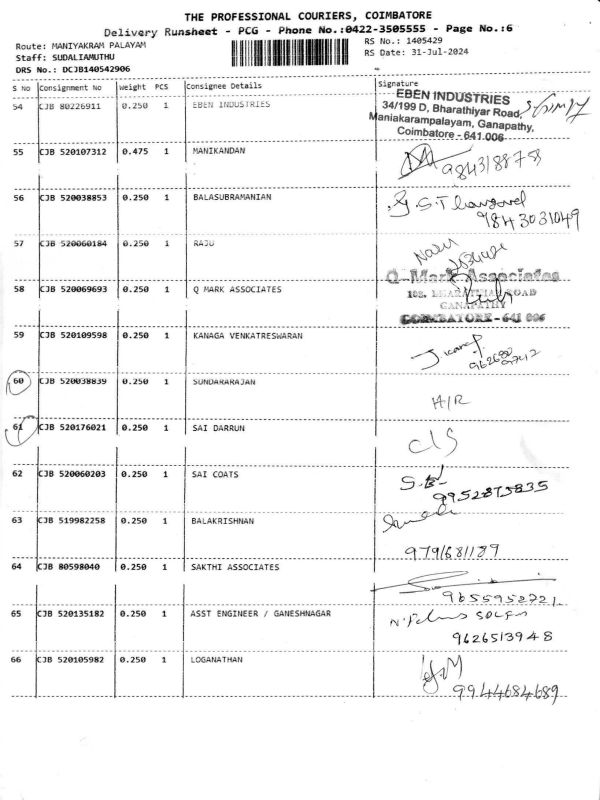 THE PROFESSIONAL COURIERS, COIMBATORE
Delivery Runsheet - PCG - Phone No.:0422-3505555 - Page No.:6
Route: MANIYAKRAM PALAYAM
RS No.: 1405429
Staff: SUDALIAMUTHU
RS Date: 31-Jul-2024
DRS No.: DCJB140542906
S No Consignment No Weight PCS Consignee Details Signature
54 CJB 80226911 0.250 1 EBEN INDUSTRIES
EBEN INDUSTRIES
34/199 D, Bharathiyar Road,
Maniakarampalayam, Ganapathy,
Coimbatore - 641 006
55 CJB 520107312 0.475 1 MANIKANDAN
9843188758
56 CJB 520038853 0.250 1 BALASUBRAMANIAN
9843031049
57 CJB 520060184 0.250 1 RAJU
58 CJB 520069693 0.250 1 Q MARK ASSOCIATES
Q-Mark Associates
102, BHARATHIAR ROAD
GANAPATHY
COIMBATORE - 641 006
59 CJB 520109598 0.250 1 KANAGA VENKATRESWARAN
60 CJB 520038839 0.250 1 SUNDARARAJAN
H/R
61 CJB 520176021 0.250 1 SAI DARRUN
C/S
62 CJB 520060203 0.250 1 SAI COATS
9952875835
63 CJB 519982258 0.250 1 BALAKRISHNAN
9791681189
64 CJB 80598040 0.250 1 SAKTHI ASSOCIATES
9655952721
65 CJB 520135182 0.250 1 ASST ENGINEER / GANESHNAGAR
9626513948
66 CJB 520105982 0.250 1 LOGANATHAN
9944684689